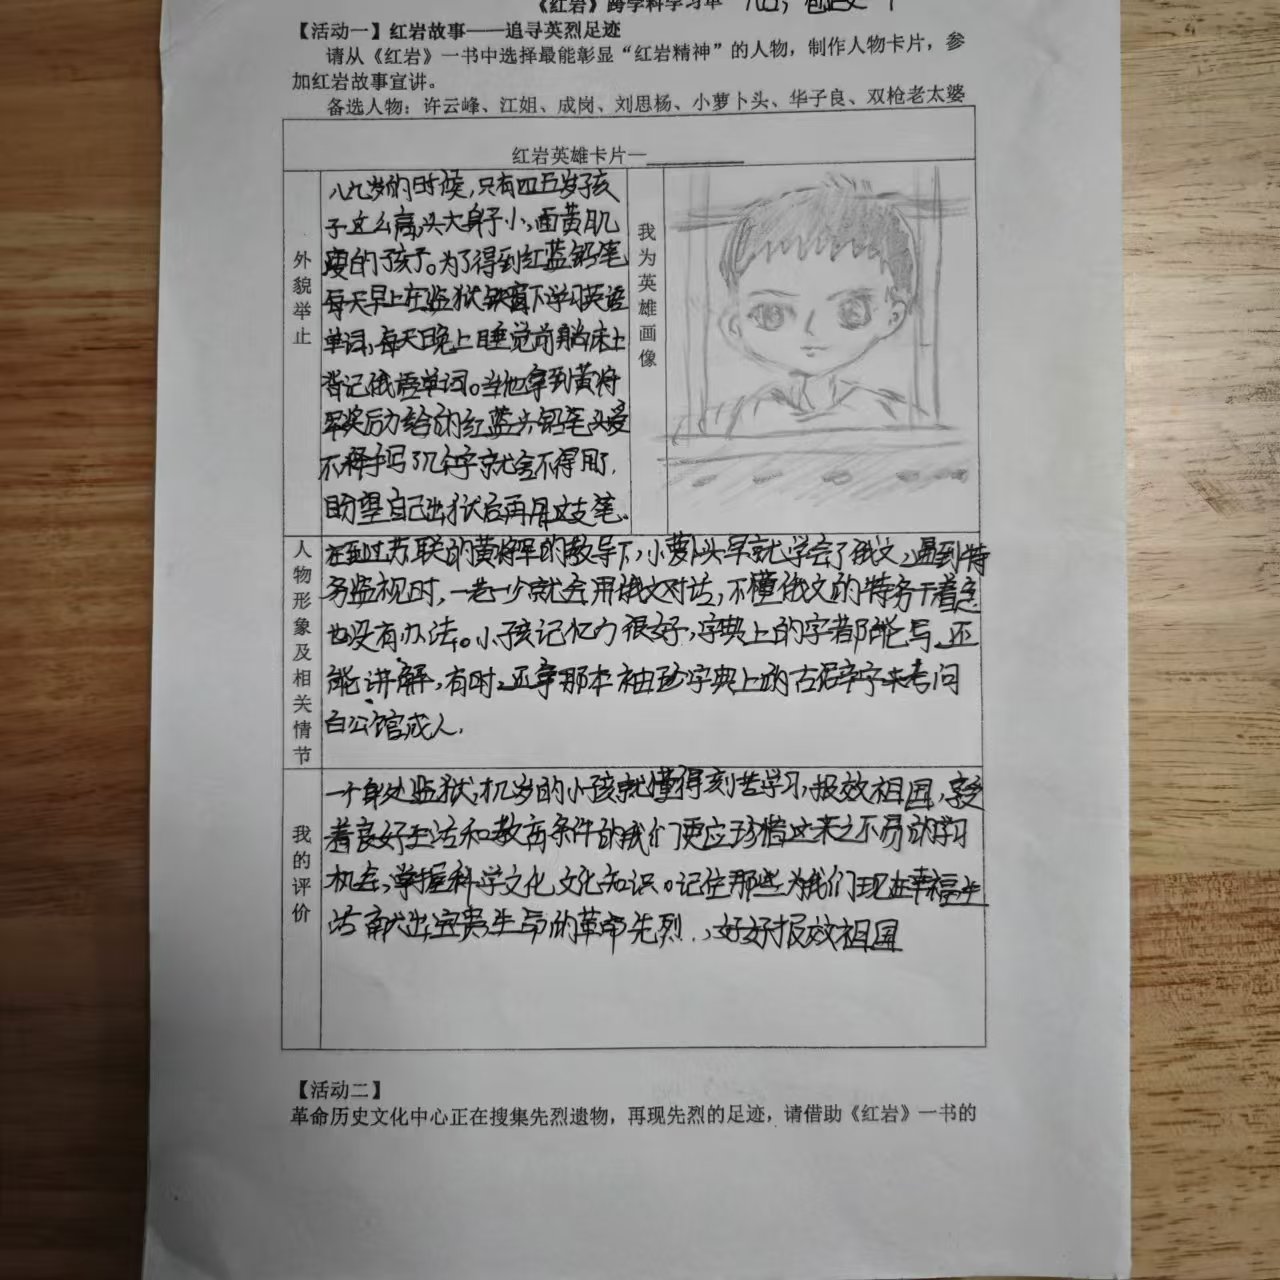 《红岩》跨学科学习单
【活动一】红岩故事——追寻英烈足迹
请从《红岩》一书中选择最能彰显“红岩精神”的人物，制作人物卡片，参
加红岩故事宣讲。
备选人物：许云峰、江姐、成岗、刘思杨、小萝卜头、华子良、双枪老太婆
红岩英雄卡片—
外貌举止
八九岁的时候，只有四五岁孩
子这么高，头大身子小，面黄肌
瘦的孩子。为了得到红蓝铅笔
每天早上在监狱铁窗下学习英语
单词，每天晚上睡觉前躺床上
背记俄语单词。当他拿到黄将
军奖励给的红蓝头铅笔头爱
不释手写了几个字就舍不得用了，
盼望自己出狱后再用这支笔。
我为英雄画像
人物形象及相关情节
在到过苏联的黄将军的教导下，小萝卜头早就学会了俄文，遇到特
务监视时，一老一少就会用俄文对话，不懂俄文的特务干着急
也没有办法。小孩记忆力很好，字典上的字都能写，还
能讲解，有时，还拿那本袖珍字典上的古怪字来考问
白公馆成人.
我的评价
一个身处监狱，几岁的小孩就懂得刻苦学习，报效祖国，享受
着良好生活和教育条件的我们更应珍惜这来之不易的学习
机会，掌握科学文化文化知识。记住那些为我们现在幸福生
活献出宝贵生命的革命先烈.，好好报效祖国
【活动二】
革命历史文化中心正在搜集先烈遗物，再现先烈的足迹，请借助《红岩》一书的